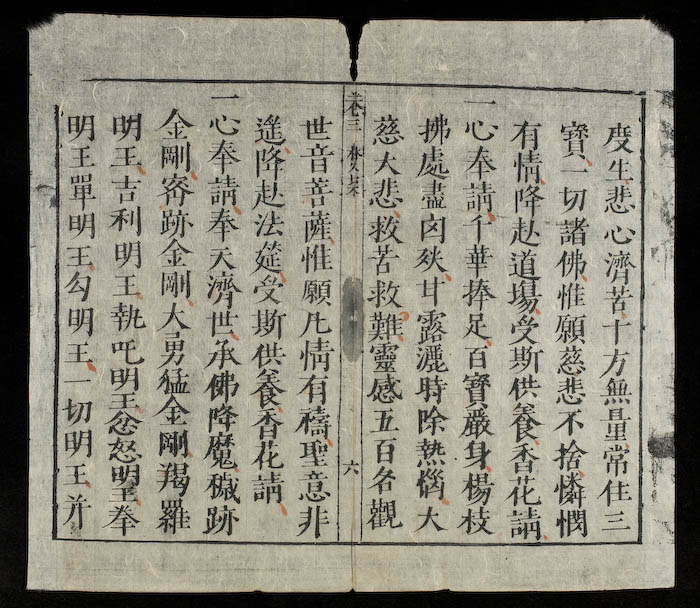 度生悲心濟苦十方無量常住三
寶一切諸佛惟願慈悲不捨憐憫
有情降赴道場受斯供養香花請
一心奉請千華捧足百寶嚴身楊枝
拂處盡凶災甘露灑時除熱惱大
慈大悲救苦救難靈感五百名觀
卷三
六
世音菩薩惟願凡情有禱聖意非
遙降赴法筵受斯供養香花請
一心奉請奉天濟世承佛降魔穢跡
金剛密跡金剛大勇猛金剛羯羅
明王吉利明王執叱明王忿怒明王拳
明王單明王勾明王一切明王并